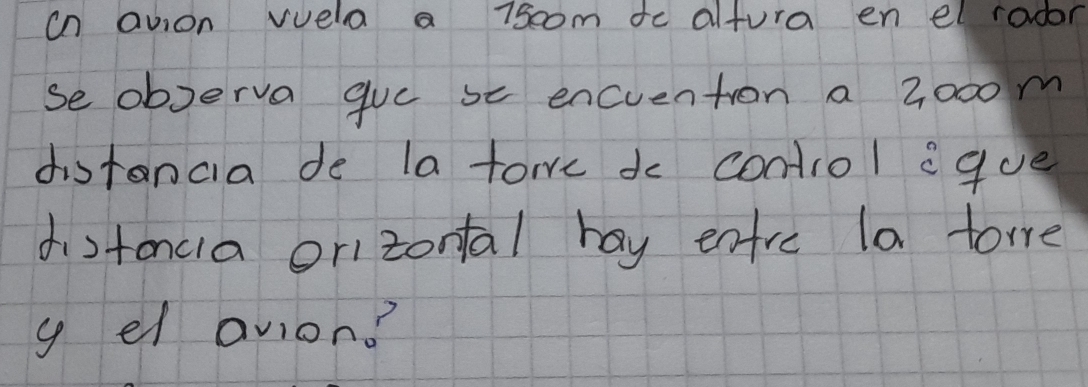 un avion vuela a 1500m de altura en el rador
se observa que se encuentran a 2,000m
distancia de la torre de control ¿que
distancia orizontal hay entre la torre
y el avion?